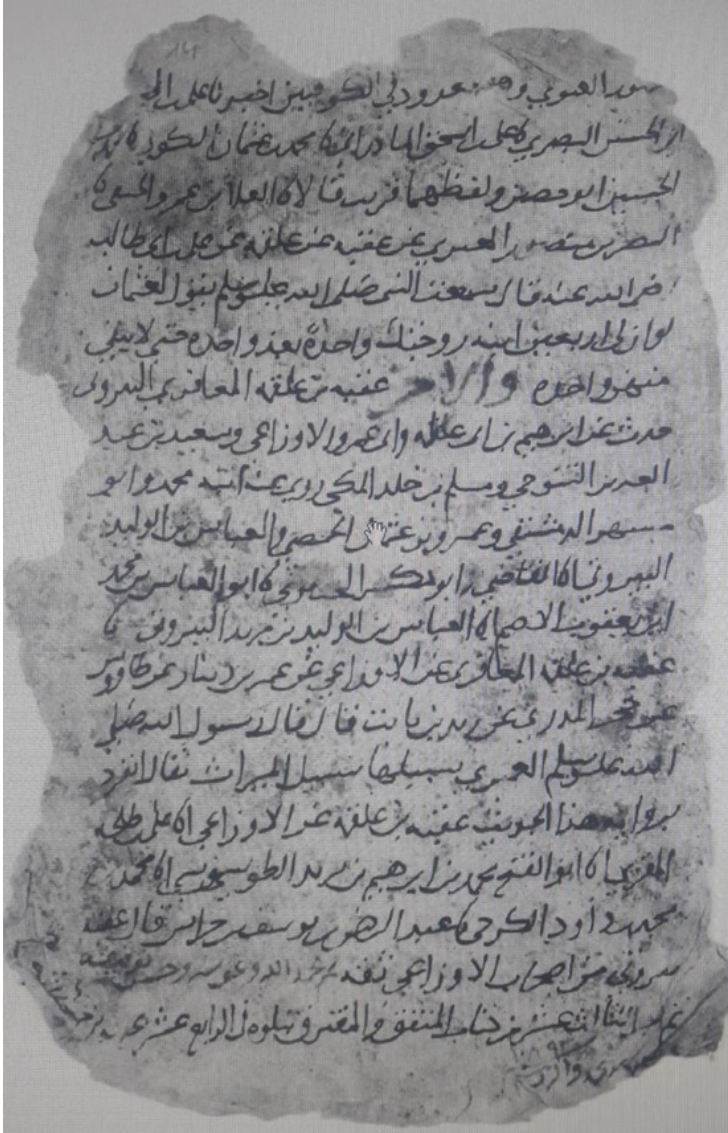 العنوي وهو معدود في الكوفيين اخبرنا علي بن
ابن الحسن البصري نا علي بن اسحق المادرائي نا محمد بن عثمان الكوفي نا محمد بن
الحسين ابو حصين ولفظهما قريب قالا نا العلا بن عمرو الحنفي نا
النضر بن منصور العنزي عن عقبه بن علقمه عن علي بن ابي طالب
رضي الله عنه قال سمعت النبي صلى الله عليه وسلم يقول لعثمان
لو ان لي اربعين ابنه زوجتك واحدة بعد واحده حتى لا يبقى
منهن واحده والاخر عقبه بن علقمه المعافري البيروتي
حدث عن ابرهيم بن ابي عبله وابي عمرو الاوزاعي وسعيد بن عبد
العزيز التنوخي ومسلم بن خلد المكي روى عنه ابنه محمد وابو
مسهر الدمشقي وعمرو بن عثمن الحمصي والعباس بن الوليد
البيروتي نا القاضي ابو بكر الحيري نا ابو العباس محمد
ابن يعقوب الاصم نا العباس بن الوليد بن مزيد البيروتي نا
عقبه بن علقمه المعافري عن الاوزاعي عن عمرو بن دينار عن طاووس
عن حجر المدري عن زيد بن ثابت قال قال رسول الله صلى
الله عليه وسلم العمري سبيلها سبيل الميراث يقال انفرد
بروايه هذا الحديث عقبه بن علقمه عن الاوزاعي انا علي بن طلحه
المقري انا ابو الفتح محمد بن ابرهيم بن يزيد الطرسوسي انا محمد بن
محمد بن داود الكرجي نا عبد الرحمن بن يوسف بن خراش قال عقبه
بيروتي من اصحاب الاوزاعي ثقه
الثالث عشر من كتاب المتفق والمفترق يتلوه في الرابع عشر